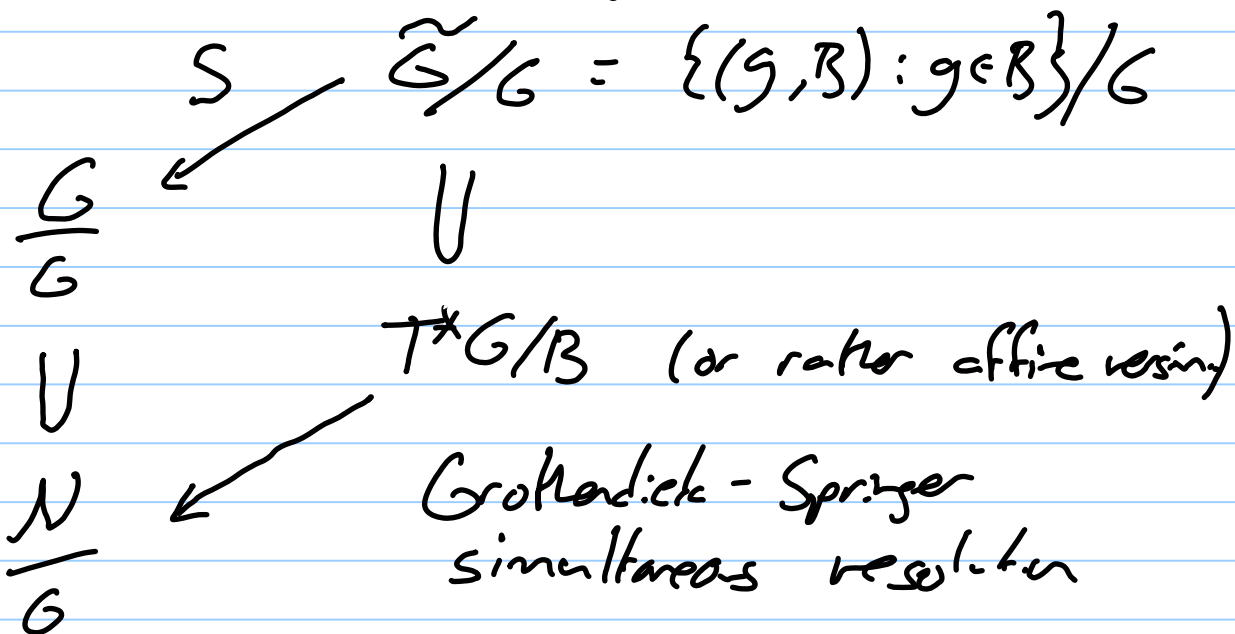 S G̃/G = {(g,B) : g∈B}/G
G/G
∪
T*G/B (or rather affine version)
∪
N/G
Grothendieck - Springer
simultaneous resolution